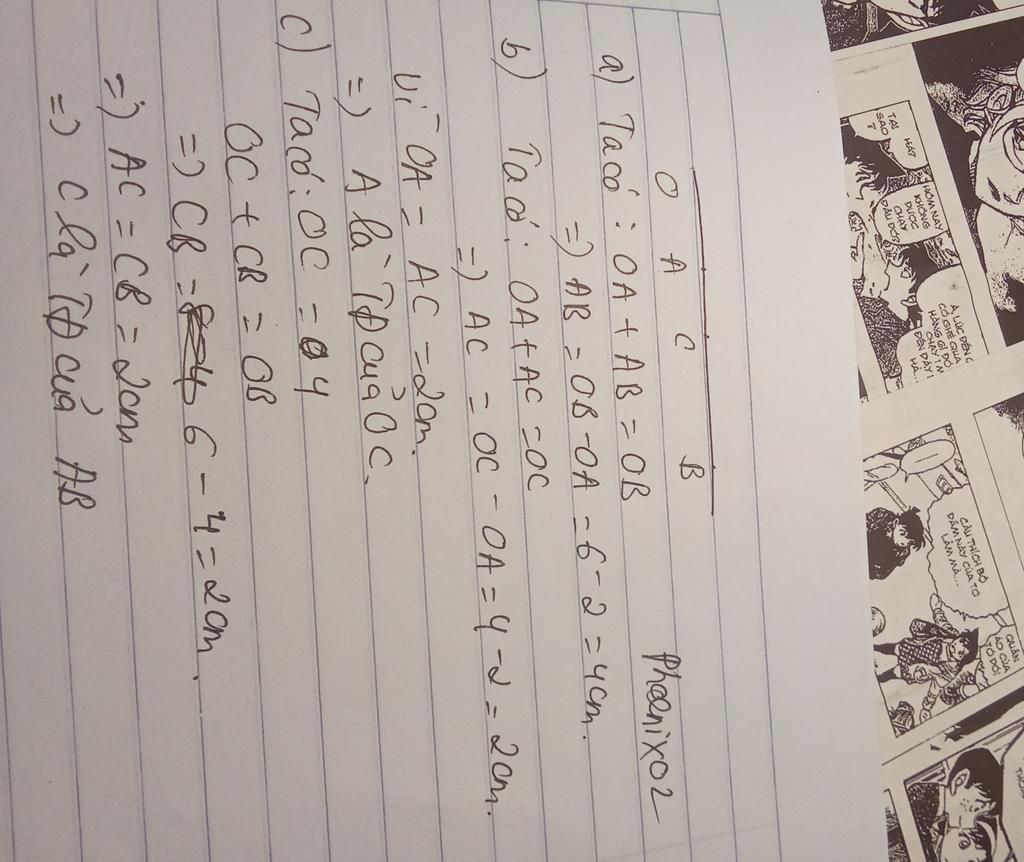 O A C B
Phoenixo2
a) Ta có : OA + AB = OB
=) AB = OB - OA = 6 - 2 = 4cm.
b) Ta có : OA + AC = OC
=) AC = OC - OA = 4 - 2 = 2cm.
Vì OA = AC = 2cm.
=) A là TĐ của OC.
c) Ta có : OC = 4
OC + CB = OB
=) CB = 6 - 4 = 2cm.
=) AC = CB = 2cm
=) C là TĐ của AB
TẠI SAO
HÔM NAY
KHÔNG
ĐƯỢC
CHẠY
À LÚC ĐẾN
CÓ GHÉ QUA
HÀNG GÌ ĐÓ
CHẠY 1 M
ĐẾN ĐÂY
HẢ...
CẬU THÍCH BỘ
DẦM NÀY CỦA TỚ
LẮM MÀ...
QUẦN
ÁO CỦA
TỚ ĐÓ!